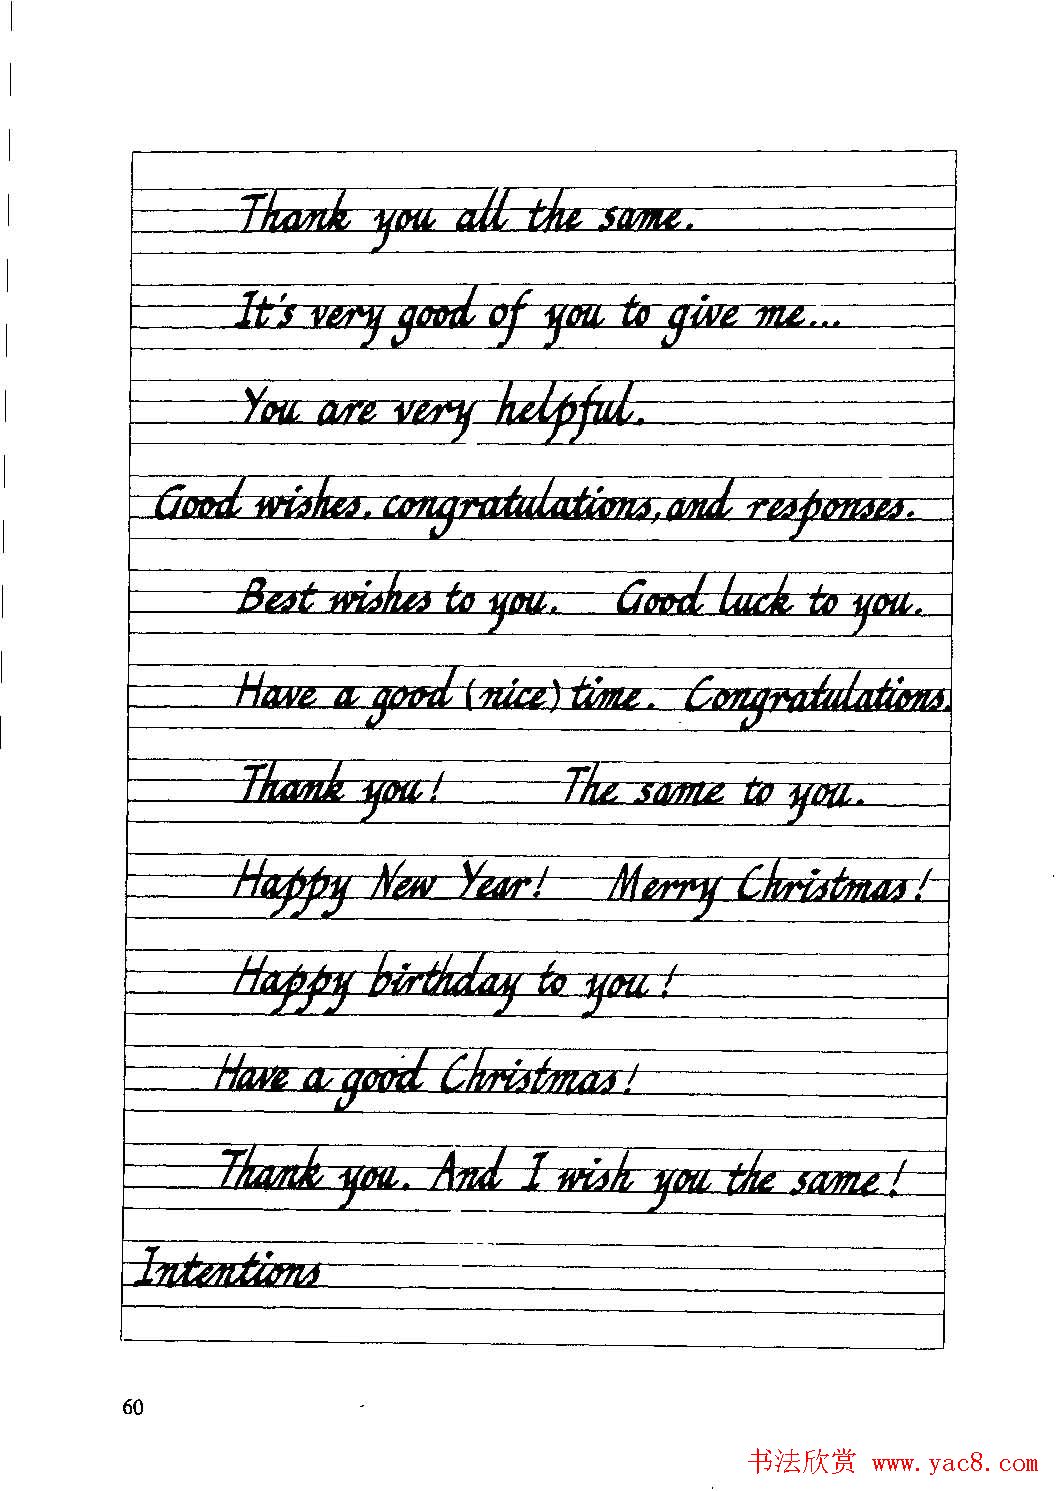 Thank you all the same.
It's very good of you to give me...
You are very helpful.
Good wishes, congratulations, and responses.
Best wishes to you. Good luck to you.
Have a good (nice) time. Congratulations.
Thank you! The same to you.
Happy New Year! Merry Christmas!
Happy birthday to you!
Have a good Christmas!
Thank you. And I wish you the same!
Intentions
60
书法欣赏 www.yac8.com